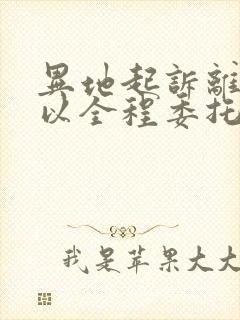 異地起訴離
以全程委托
我是苹果大大